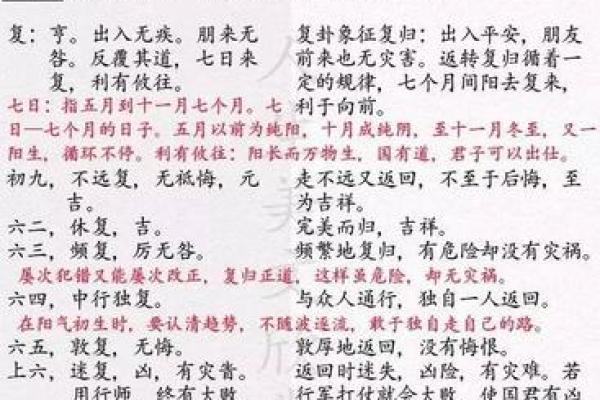 复：亨。出入无疾。朋来无 复卦象征复归：出入平安，朋友
咎。反覆其道，七日来 前来也无灾害。返转复归循着一
复，利有攸往。 定的规律，七个月间阳去复来，
七日：指五月到十一月七个月。七 利于向前。
日—七个月的日子。五月以前为纯阳，十月成纯阴，至十一月冬至，又一
阳生，循环不停。利有攸往：阳长而万物生，国有道，君子可以出仕。
初九，不远复，无祗悔，元 走不远又返回，不至于后悔，至
吉。 为吉祥。
六二，休复，吉。 完美而归，吉祥。
六三，频复，厉无咎。 频繁地复归，有危险却没有灾祸。
屡次犯错又能屡次改正，复归正道，这样虽危险，却无灾祸。
六四，中行独复。 与众人通行，独自一人返回。
在阳气初生时，要认清趋势，不随波逐流，敢于独自走自己的路。
六五，敦复，无悔。 敦厚地返回，没有悔恨。
上六，迷复，凶，有灾眚。 返回时迷失，凶险，有灾难。若
用行师，终有大败 行军打仗就会大败，使国君有凶